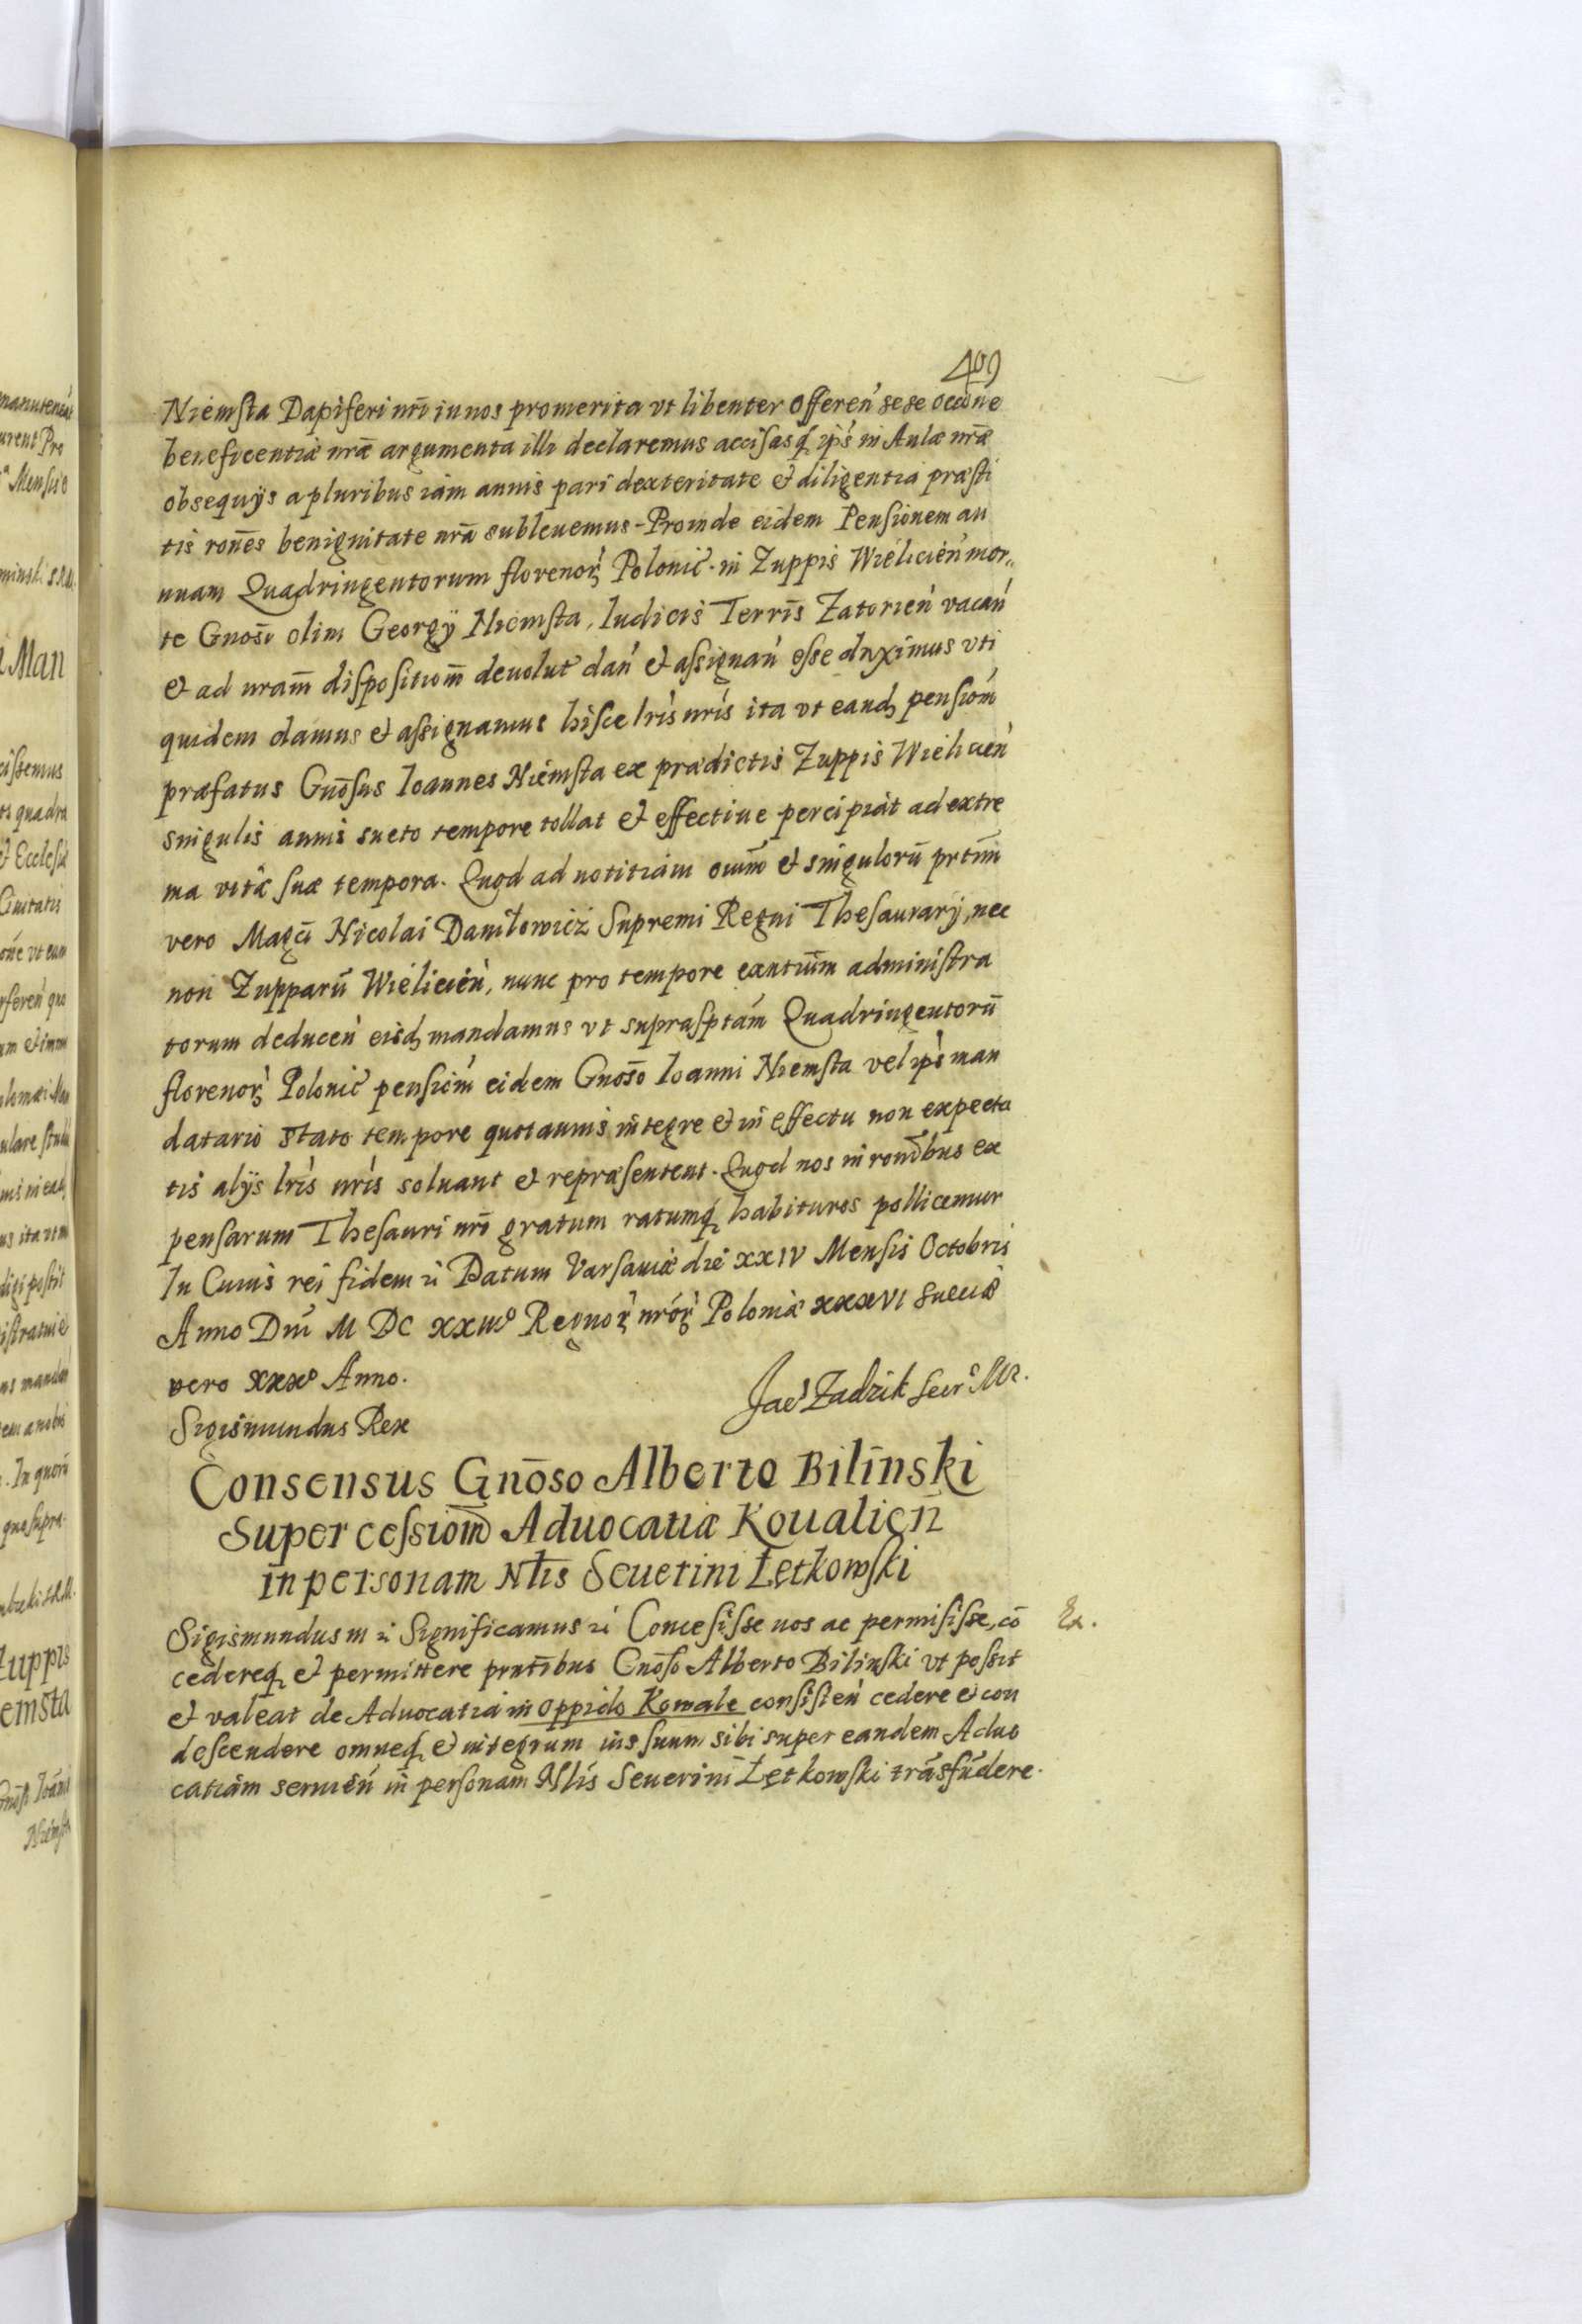 409
Niemsta Dapiferi nrī in nos promerita vt libenter offeren̄ sese occōne
beneficentiæ nrǣ argumenta illi declaremus accisasq́ ip̄s in Aula nrā
obsequÿs a pluribus iam annis pari dexteritate et diligentia præsti
tis ron̄es benignitate nrā subleuemus - Proinde eidem Pensionem an
nuam Quadringentorum florenor̨ Polonic̄. in Zuppis Wielicien̄ mor„
te Gnosī olim Georgÿ Niemsta, Iudicis Terrīs Zatorien̄ vacan̄
et ad nram̄ dispositiom̄ deuolut̄ dan̄ et assignan̄ esse duximus vti
quidem damus et assignamus hisce lrīs nrīs ita vt eand̨ pensiom̄
præfatus Gnōsus Ioannes Niemsta ex prædictis Zuppis Wielicien̄
singulis annis sueto tempore tollat et effectiue percipiat ad extre
ma vitæ suæ tempora. Quod ad notitiam oium̄ et singulorū prtim̄
vero Magcī Nicolai Daniłowicż Supremi Regni Thesaurarÿ, nec
non Zupparū Wielicien̄, nunc pro tempore exntium̄ administra
torum deducen̄ eisd̨ mandamus vt suprasptam̄ Quadringentorū
florenor̨ Polonic̄ pensiom̄ eidem Gnoso̅ Ioanni Niemsta vel ip̄s man
datario stato tempore quotannis integre et in effectu non expecta
tis alÿs lrīs nrīs soluant et repræsentent. Quod nos in ronībus ex
pensarum Thesauri nrī gratum ratumq́ habituros pollicemur
In Cuius rei fidem ꝛc Datum Varsauiæ die XXIV Mensis Octobris
Anno Dnī M DC XXIIIº Regnor̨ nror̨ Poloniæ XXXVI Sueciæ
vero XXXº Anno.
Sigismundus Rex
Jac̄ Zadzik Secrº MR.
Consensus Gnōso Alberto Bilinski
Super cessiom̄ Aduocatiæ Koualien̄
in personam Nlīs Seuerini Łętkowski
Sigismundus III ꝛc Significamus ꝛc Concesisse nos ac permisisse, cō
cedereq́ et permittere pntībus Gnōso Alberto Bilinski vt possit
et valeat de Aduocatia in oppido Kowale consisten̄ cedere et con
descendere omneq́ et integrum ius suum sibi super eandem Aduo
catiam seruien̄ in personam Nlīs Seuerini Łętkowski trāsfūdere.
Ex.